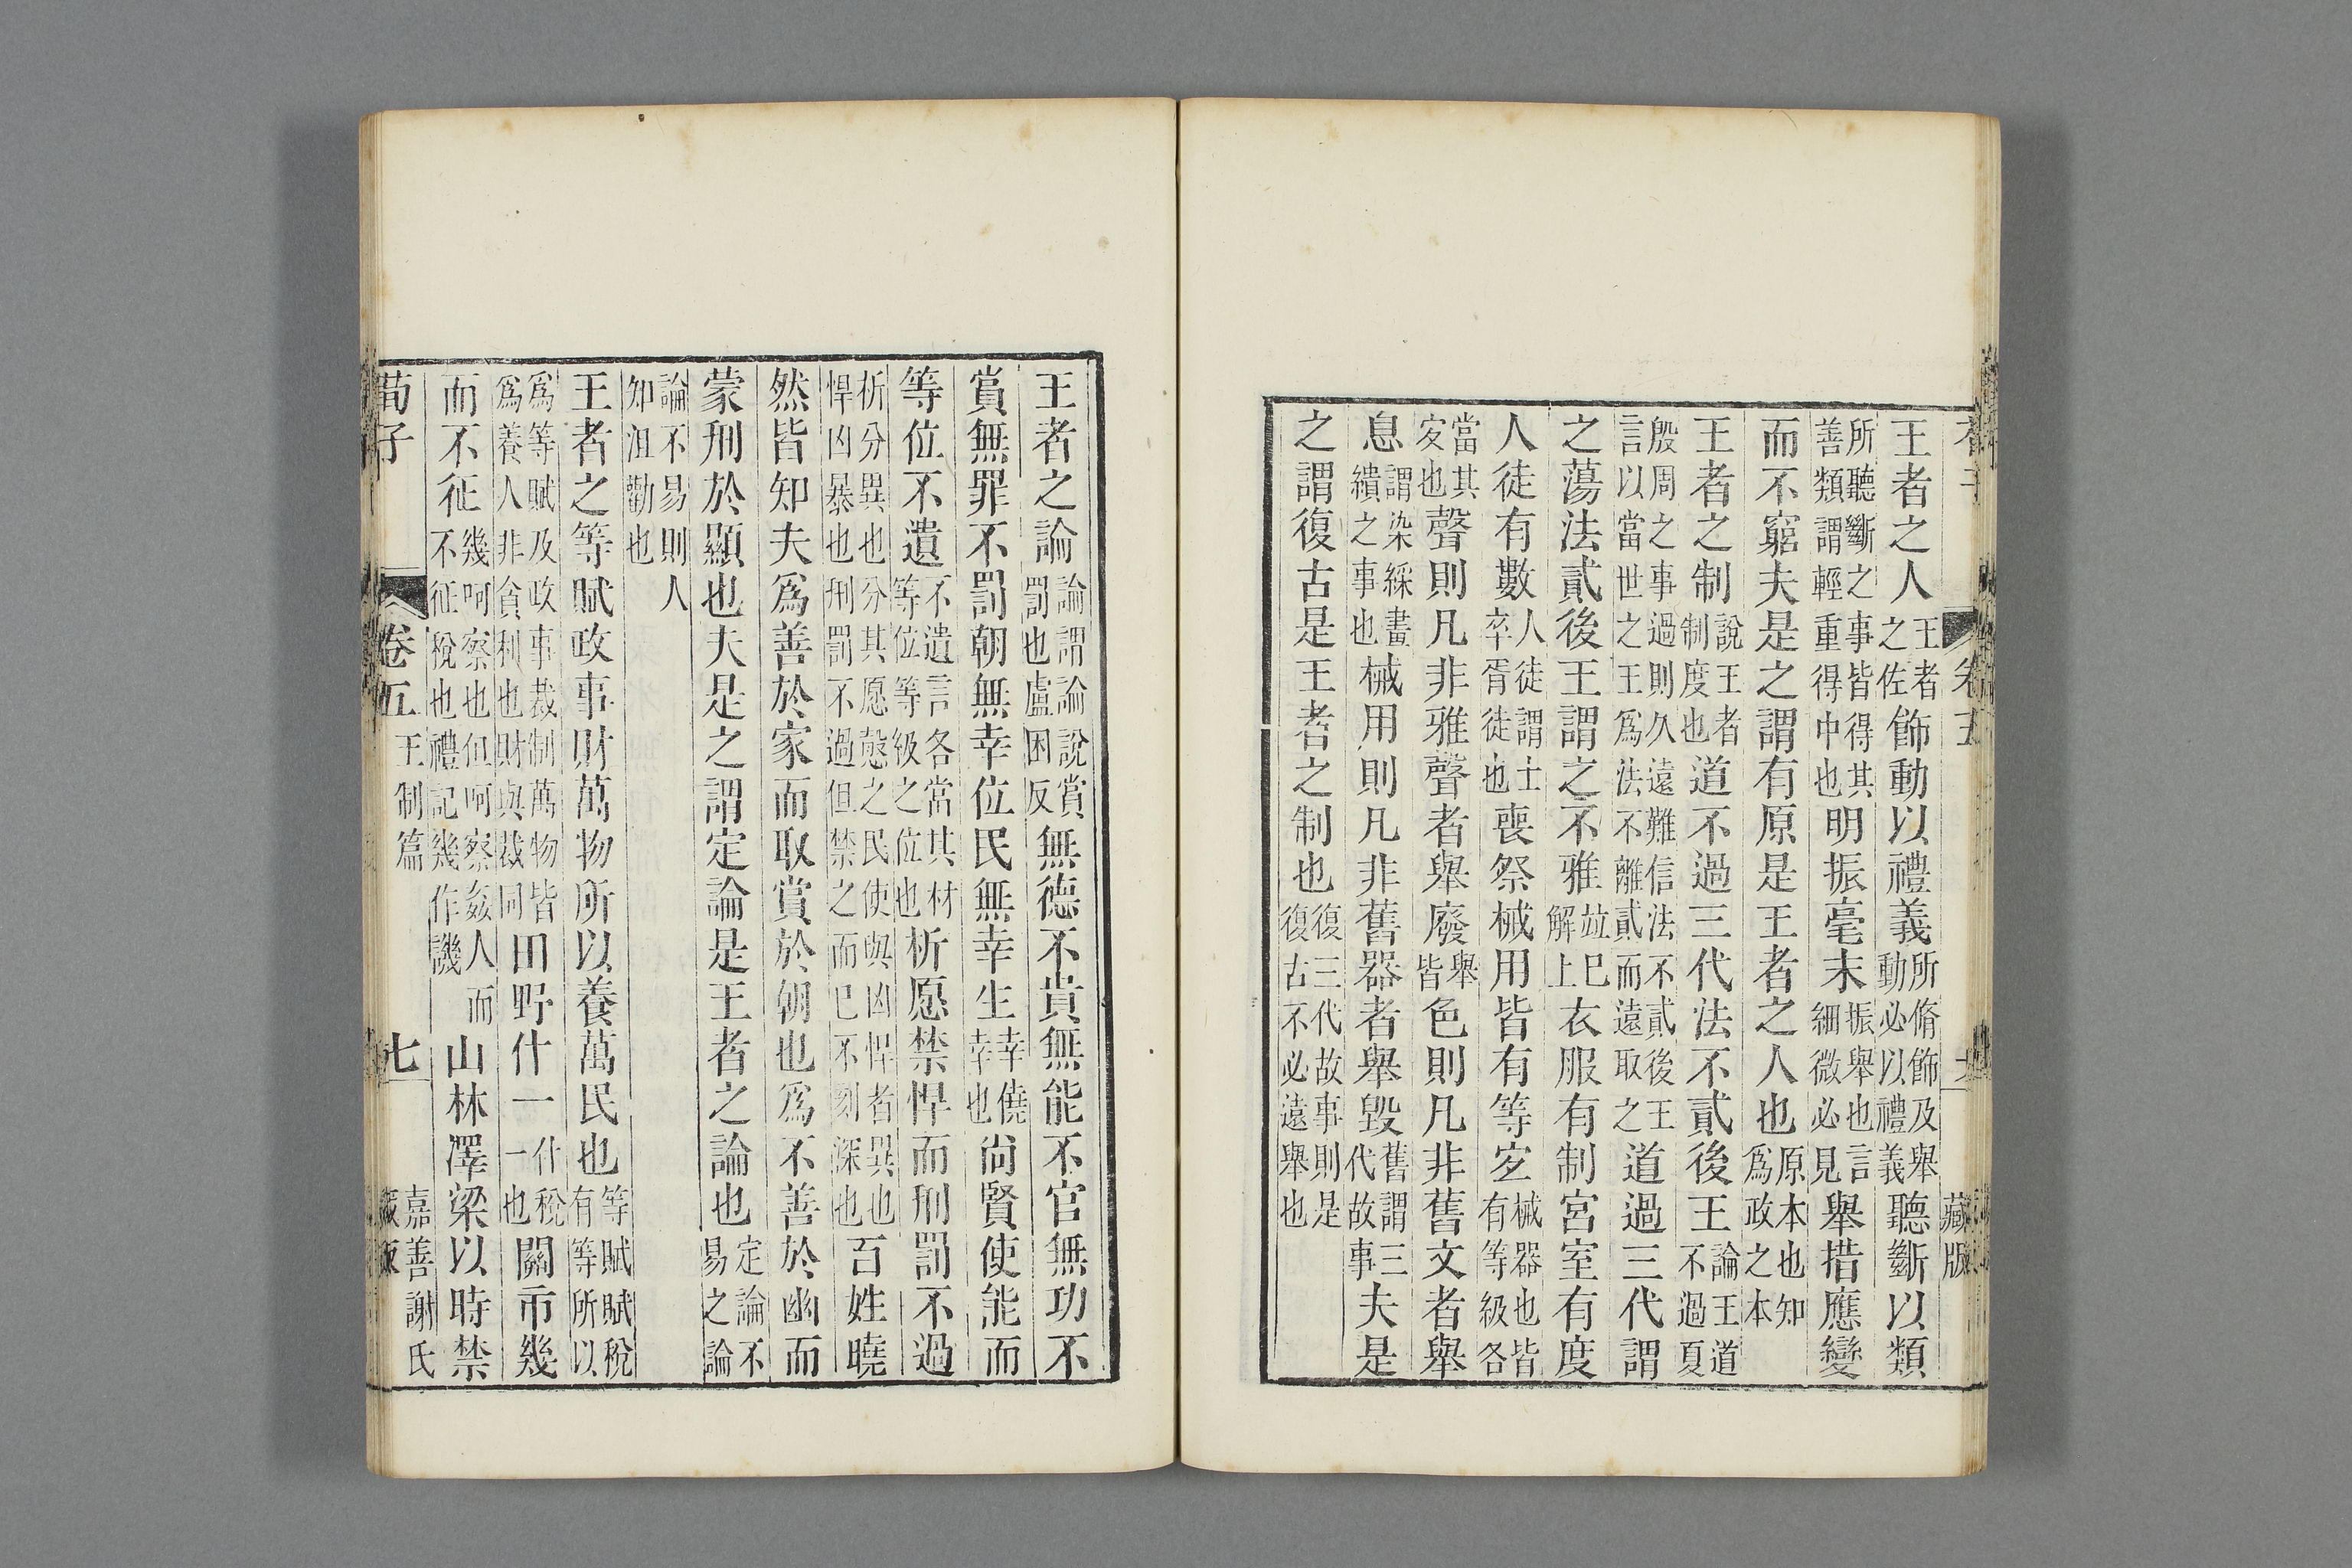 藏版
王者之人王者之佐飾動以禮義所脩飾及舉動必以禮義聽斷以類
所聽斷之事皆得其善類謂輕重得中也明振毫末振舉也言細微必見舉措應變
而不窮夫是之謂有原是王者之人也原本也知爲政之本
王者之制說王者制度也道不過三代法不貳後王論王道不過夏
殷周之事過則久遠難信法不貳後王言以當世之王爲法不離貳而遠取之道過三代謂
之蕩法貳後王謂之不雅竝巳解上衣服有制宮室有度
人徒有數人徒謂士卒胥徒也喪祭械用皆有等宐械器也皆有等級各
當其宐也聲則凡非雅聲者舉廢舉皆色則凡非舊文者舉
息謂染綵畫繢之事也械用則凡非舊器者舉毀舊謂三代故事夫是
之謂復古是王者之制也復三代故事則是復古不必遠舉也
王者之論論謂論說賞罰也盧困反無德不貴無能不官無功不
賞無罪不罰朝無幸位民無幸生幸僥幸也尙賢使能而
等位不遺不遺言各當其材等位等級之位也析愿禁悍而刑罰不過
析分異也分其愿愨之民使與凶悍者異也悍凶暴也刑罰不過但禁之而巳不刻深也百姓曉
然皆知夫爲善於家而取賞於朝也爲不善於幽而
蒙刑於顯也夫是之謂定論是王者之論也定論不易之論
論不易則人知沮勸也
王者之等賦政事財萬物所以養萬民也等賦賦稅有等所以
爲等賦及政事裁制萬物皆爲養人非貪利也財與裁同田野什一什稅一也關市幾
而不征幾呵察也但呵察姦人而不征稅也禮記幾作譏山林澤梁以時禁
荀子 卷五 王制篇 七 嘉善謝氏藏版